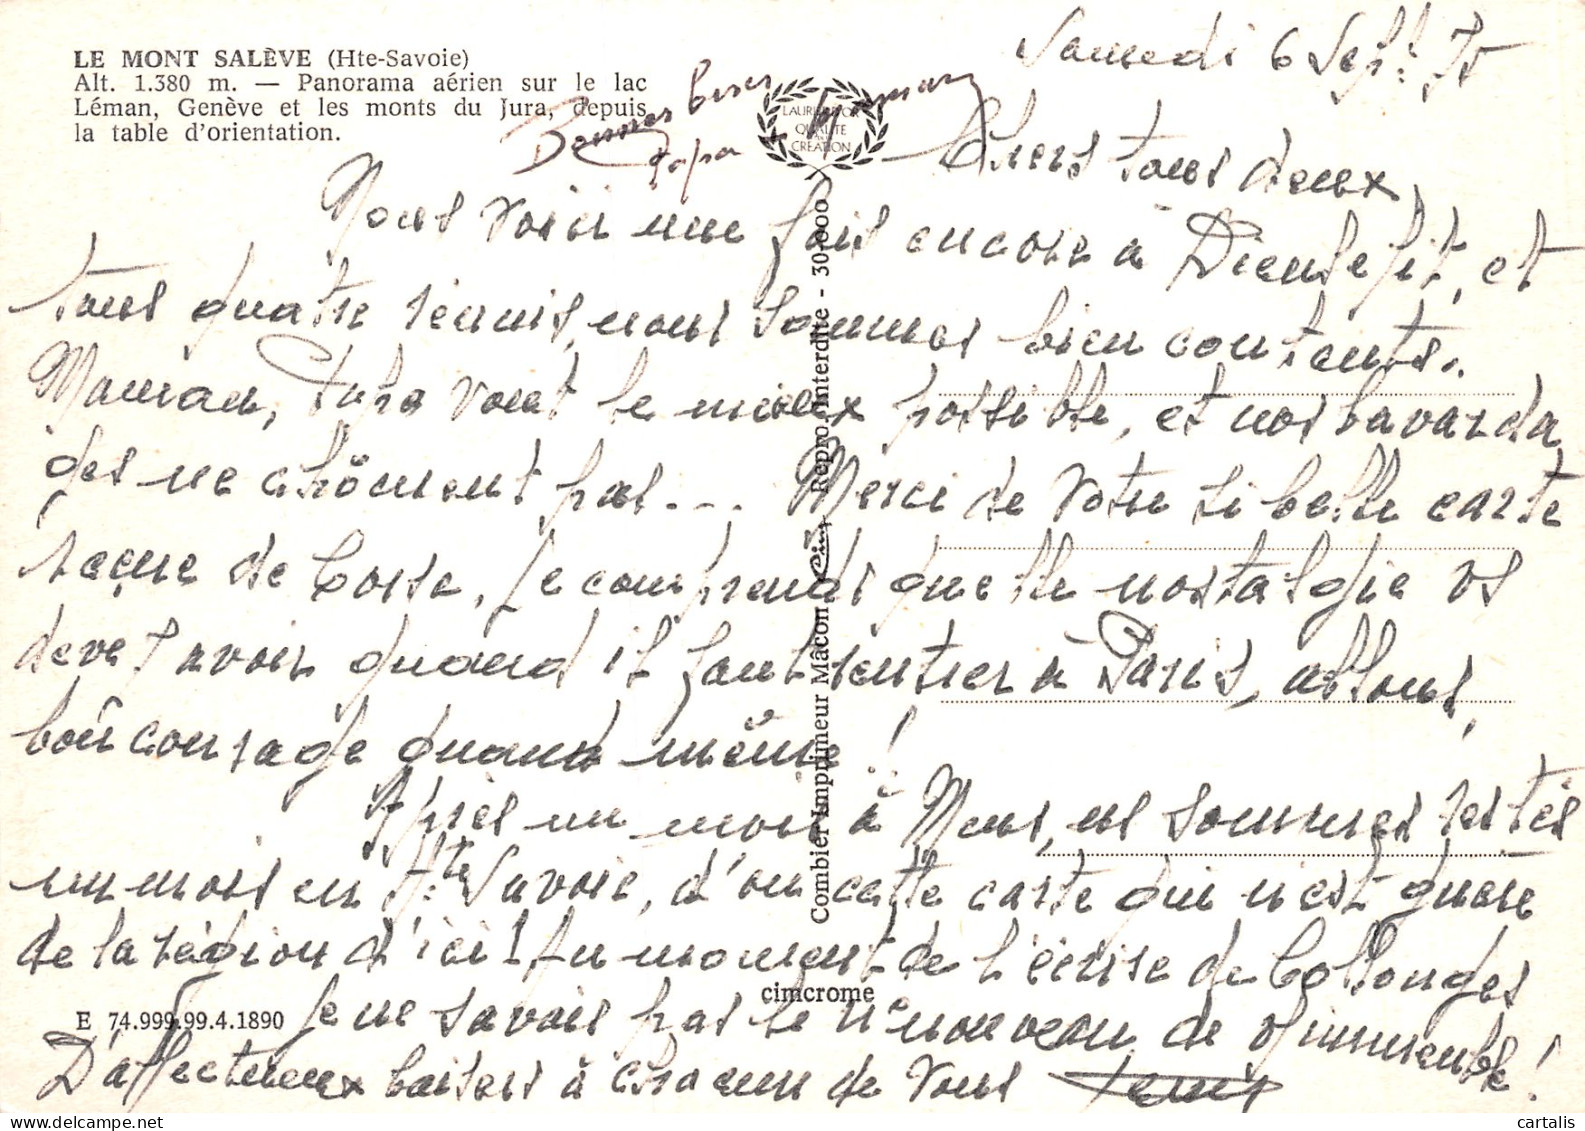 LE MONT SALÈVE (Hte-Savoie)
Alt. 1.380 m. — Panorama aérien sur le lac
Léman, Genève et les monts du Jura, depuis
la table d'orientation.
Bonnes bises
papa + maman
LAURIER D'OR
QUALITÉ
CRÉATION
Samedi 6 Sept. 75
Chers tous deux,
Nous voici une fois encore à Dieulefit, et
tous quatre réunis, nous sommes bien contents.
Maman, papa vont le mieux possible, et nos bavarda
ges ne chôment pas... Merci de votre si belle carte
reçue de Corse, je comprends quelle nostalgie vs
devez avoir quand il faut rentrer à Paris, allons,
bon courage quand même !
Après un mois à Mens, ns sommes restés
un mois en Hte Savoie, d'où cette carte qui n'est guère
de la région d'ici ! Au moment de l'écrire de Collonges
je ne savais pas le n° nouveau de l'immeuble !
D'affectueux baisers à chacun de vous
Repro. Interdite - 30.000
Combier Imprimeur Mâcon Cim
cimcrome
E 74.999.99.4.1890
cartalis.com